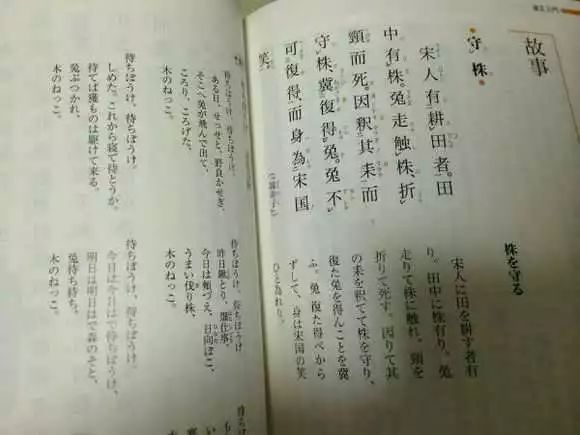 故事
守株
宋人有耕田者。田
中有株。兎走触株、折
頸而死。因釈其耒而
守株、冀復得兎。兎不
可復得、而身為宋国
笑。
株を守る
宋人に田を耕す者有
り。田中に株有り。兎
走りて株に触れ、頸を
折りて死す。因りて其
の耒を釈てて株を守り、
復た兎を得んことを冀
ふ。兎復た得べから
ずして、身は宋国の笑
ひと為れり。
待ちぼうけ、待ちぼうけ。
ある日、せっせと、野良かせぎ、
そこへ兎が飛んで出て、
ころり、ころげた、
木のねっこ。
待ちぼうけ、待ちぼうけ。
しめた。これから寝て待とうか。
待てば獲ものは駆けて来る。
兎ぶつかれ、
木のねっこ。
待ちぼうけ、待ちぼうけ
昨日鍬とり、畑仕事、
今日は頬づえ、日向ぼこ、
うまい伐り株、
木のねっこ。
待ちぼうけ、待ちぼうけ。
今日は今日はで待ちぼうけ、
明日は明日はで森のそと、
兎待ち待ち、
木のねっこ。